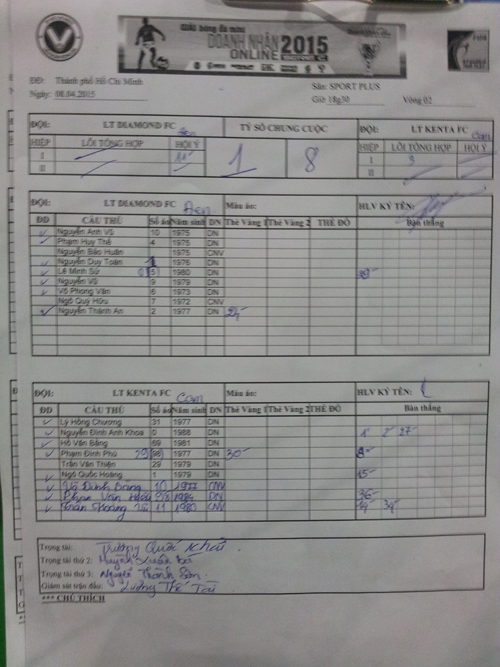 GIẢI bóng đá mini
DOANH NHÂN 2015
ONLINE
ĐĐ: Thành phố Hồ Chí Minh
Ngày: 08.04.2015
Sân: SPORT PLUS
Giờ: 18g30 Vòng 02
ĐỘI: LT DIAMOND FC Đen TỶ SỐ CHUNG CUỘC ĐỘI: LT KENTA FC Cam
HIỆP LỖI TỔNG HỢP HỘI Ý 1 8 HIỆP LỖI TỔNG HỢP HỘI Ý
I I 3
II II
ĐỘI: LT DIAMOND FC Đen Màu áo: HLV KÝ TÊN:
ĐD CẦU THỦ Số áo Năm sinh DN Thẻ Vàng 1 Thẻ Vàng 2 THẺ ĐỎ Bàn thắng
Nguyễn Anh Vũ 10 1975 DN
Phạm Huy Thế 4 1975 DN
Nguyễn Bảo Huân 1975 CNV
Nguyễn Duy Toàn 1 1976 DN
Lê Minh Sử 1980 DN
Nguyễn Vũ 9 1979 DN
Võ Phong Vân 6 1973 DN
Ngô Quý Hữu 7 1972 CNV
Nguyễn Thành An 2 1977 DN
ĐỘI: LT KENTA FC Cam Màu áo: HLV KÝ TÊN:
ĐD CẦU THỦ Số áo Năm sinh DN Thẻ Vàng 1 Thẻ Vàng 2 THẺ ĐỎ Bàn thắng
Lý Hồng Chương 31 1977 DN
Nguyễn Đình Anh Khoa 0 1988 DN 1' 2' 27'
Hồ Văn Bằng 69 1981 DN
Phạm Đình Phú 29 1977 DN 30'
Trần Văn Thiện 29 1979 DN
Ngô Quốc Hoàng 1 1979 DN 15'
Võ Đình Bảng 10 1977 CNV
Phan Văn 1984 DN 36'
Trần Hoàng Vũ 11 1980 CNV
Trọng tài: Trương Quốc Khải
Trọng tài thứ 2: Huỳnh Xuân
Trọng tài thứ 3: Nguyễn Thành Sơn
Giám sát trận đấu: Lương Thế Tài
*** CHÚ THÍCH